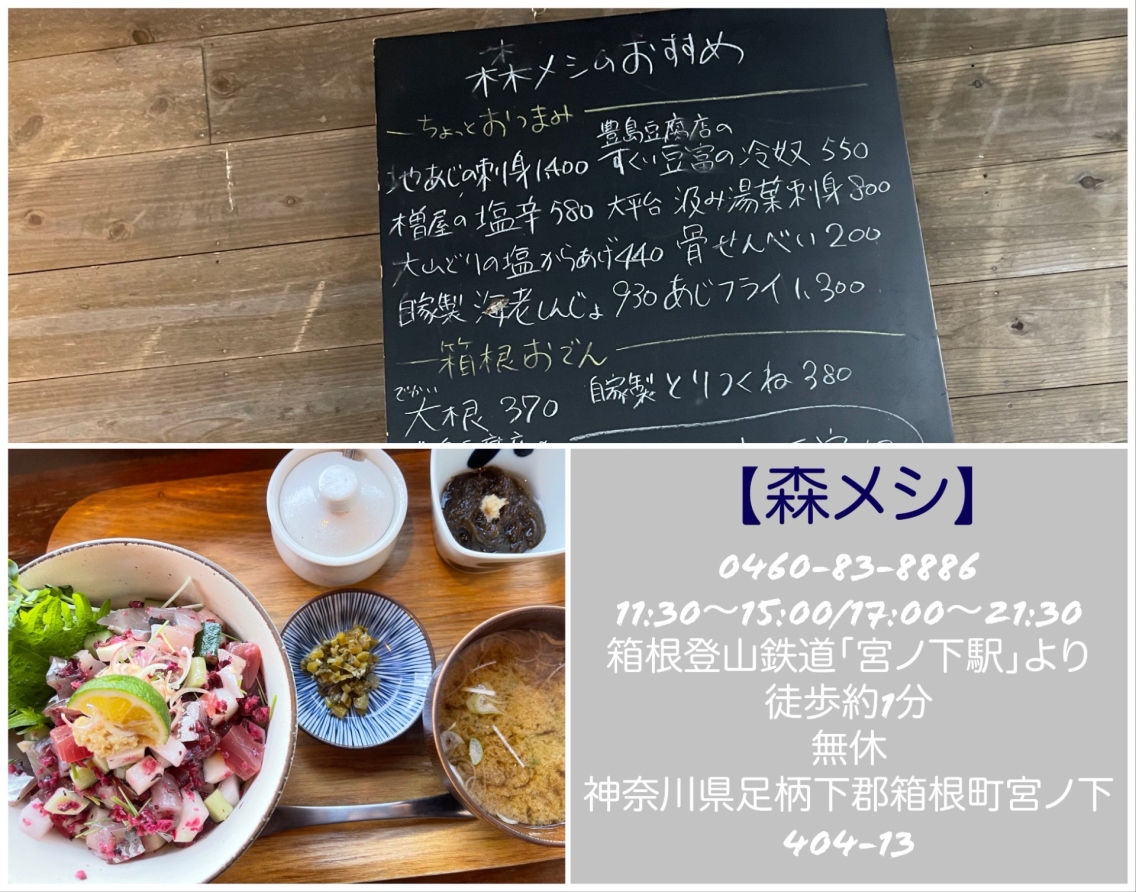 森メシのおすすめ
ちょっとおつまみ
地あじの刺身1,400
豊島豆腐店の
すくい豆富の冷奴 550
樽屋の塩辛 580
大平台 汲み湯葉刺身 800
大山どりの塩からあげ 440
骨せんべい 200
自家製 海老しんじょ 930
あじフライ 1,300
箱根おでん
でかい
大根 370
自家製とりつくね 380
【森メシ】
0460-83-8886
11:30〜15:00/17:00〜21:30
箱根登山鉄道「宮ノ下駅」より
徒歩約1分
無休
神奈川県足柄下郡箱根町宮ノ下
404-13